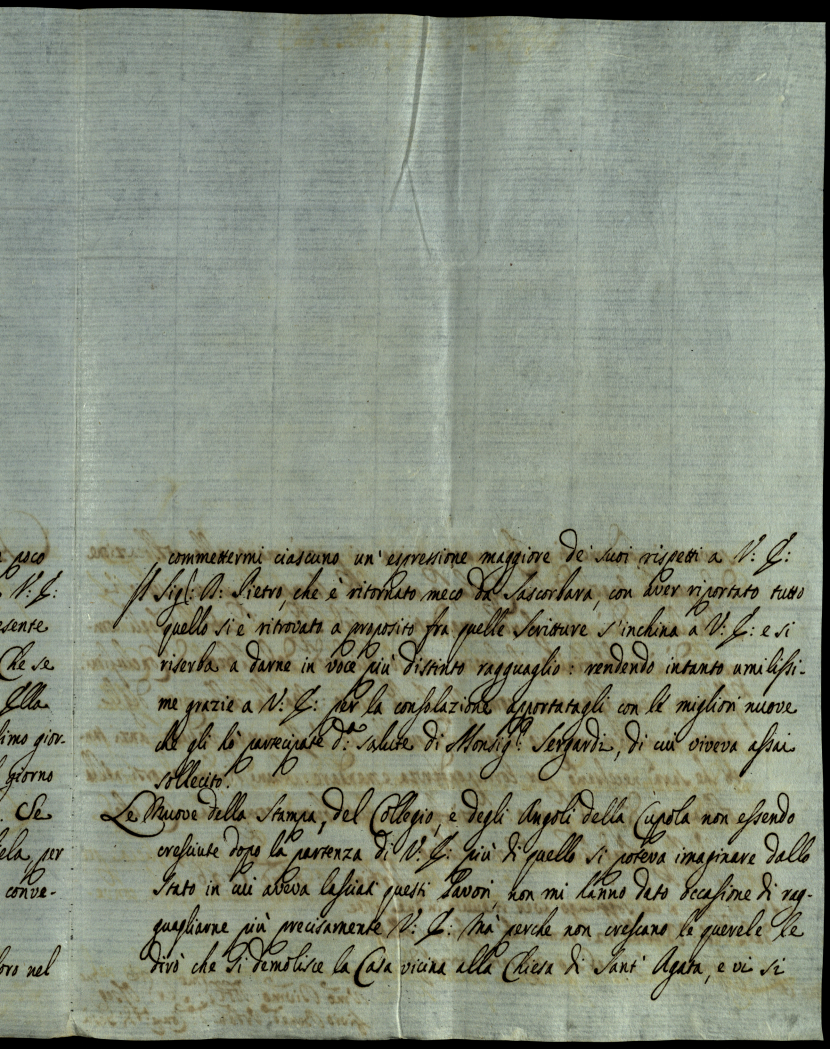 poco
V: E:
esente
Che se
Ella
simo gior-
giorno
. Se
ela per
conve-
oro nel
commettermi ciascuno un' espressione maggiore de' suoi rispetti a V: E:
Il Sig.r: D: Pietro, che è ritornato meco da Sascorbara, con aver riportato tutto
quello si è ritrovato a proposito fra quelle Scritture s'inchina à V: E: e si
riserba a darne in voce più distinto ragguaglio: rendendo intanto umilissi-
me grazie a V: E: per la consolazione apportatagli con le migliori nuove
che gli hò partecipate d:a salute di Monsig.r: Sergardi, di cui viveva assai
sollecito.
Le Nuove della Stampa, del Collegio, e degli Angoli della Cupola non essendo
cresciute dopo la partenza di V: E: più di quello si poteva imaginare dallo
Stato in cui aveva lasciati questi Lavori, non mi hanno dato occasione di rag-
guagliarne più precisamente V: E: Mà perche non crescano le querele le
dirò che si demolisce la Casa vicina alla Chiesa di Sant' Agata, e vi si